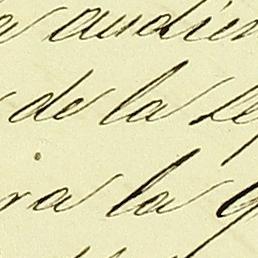 a audien
de la Le
ra la g